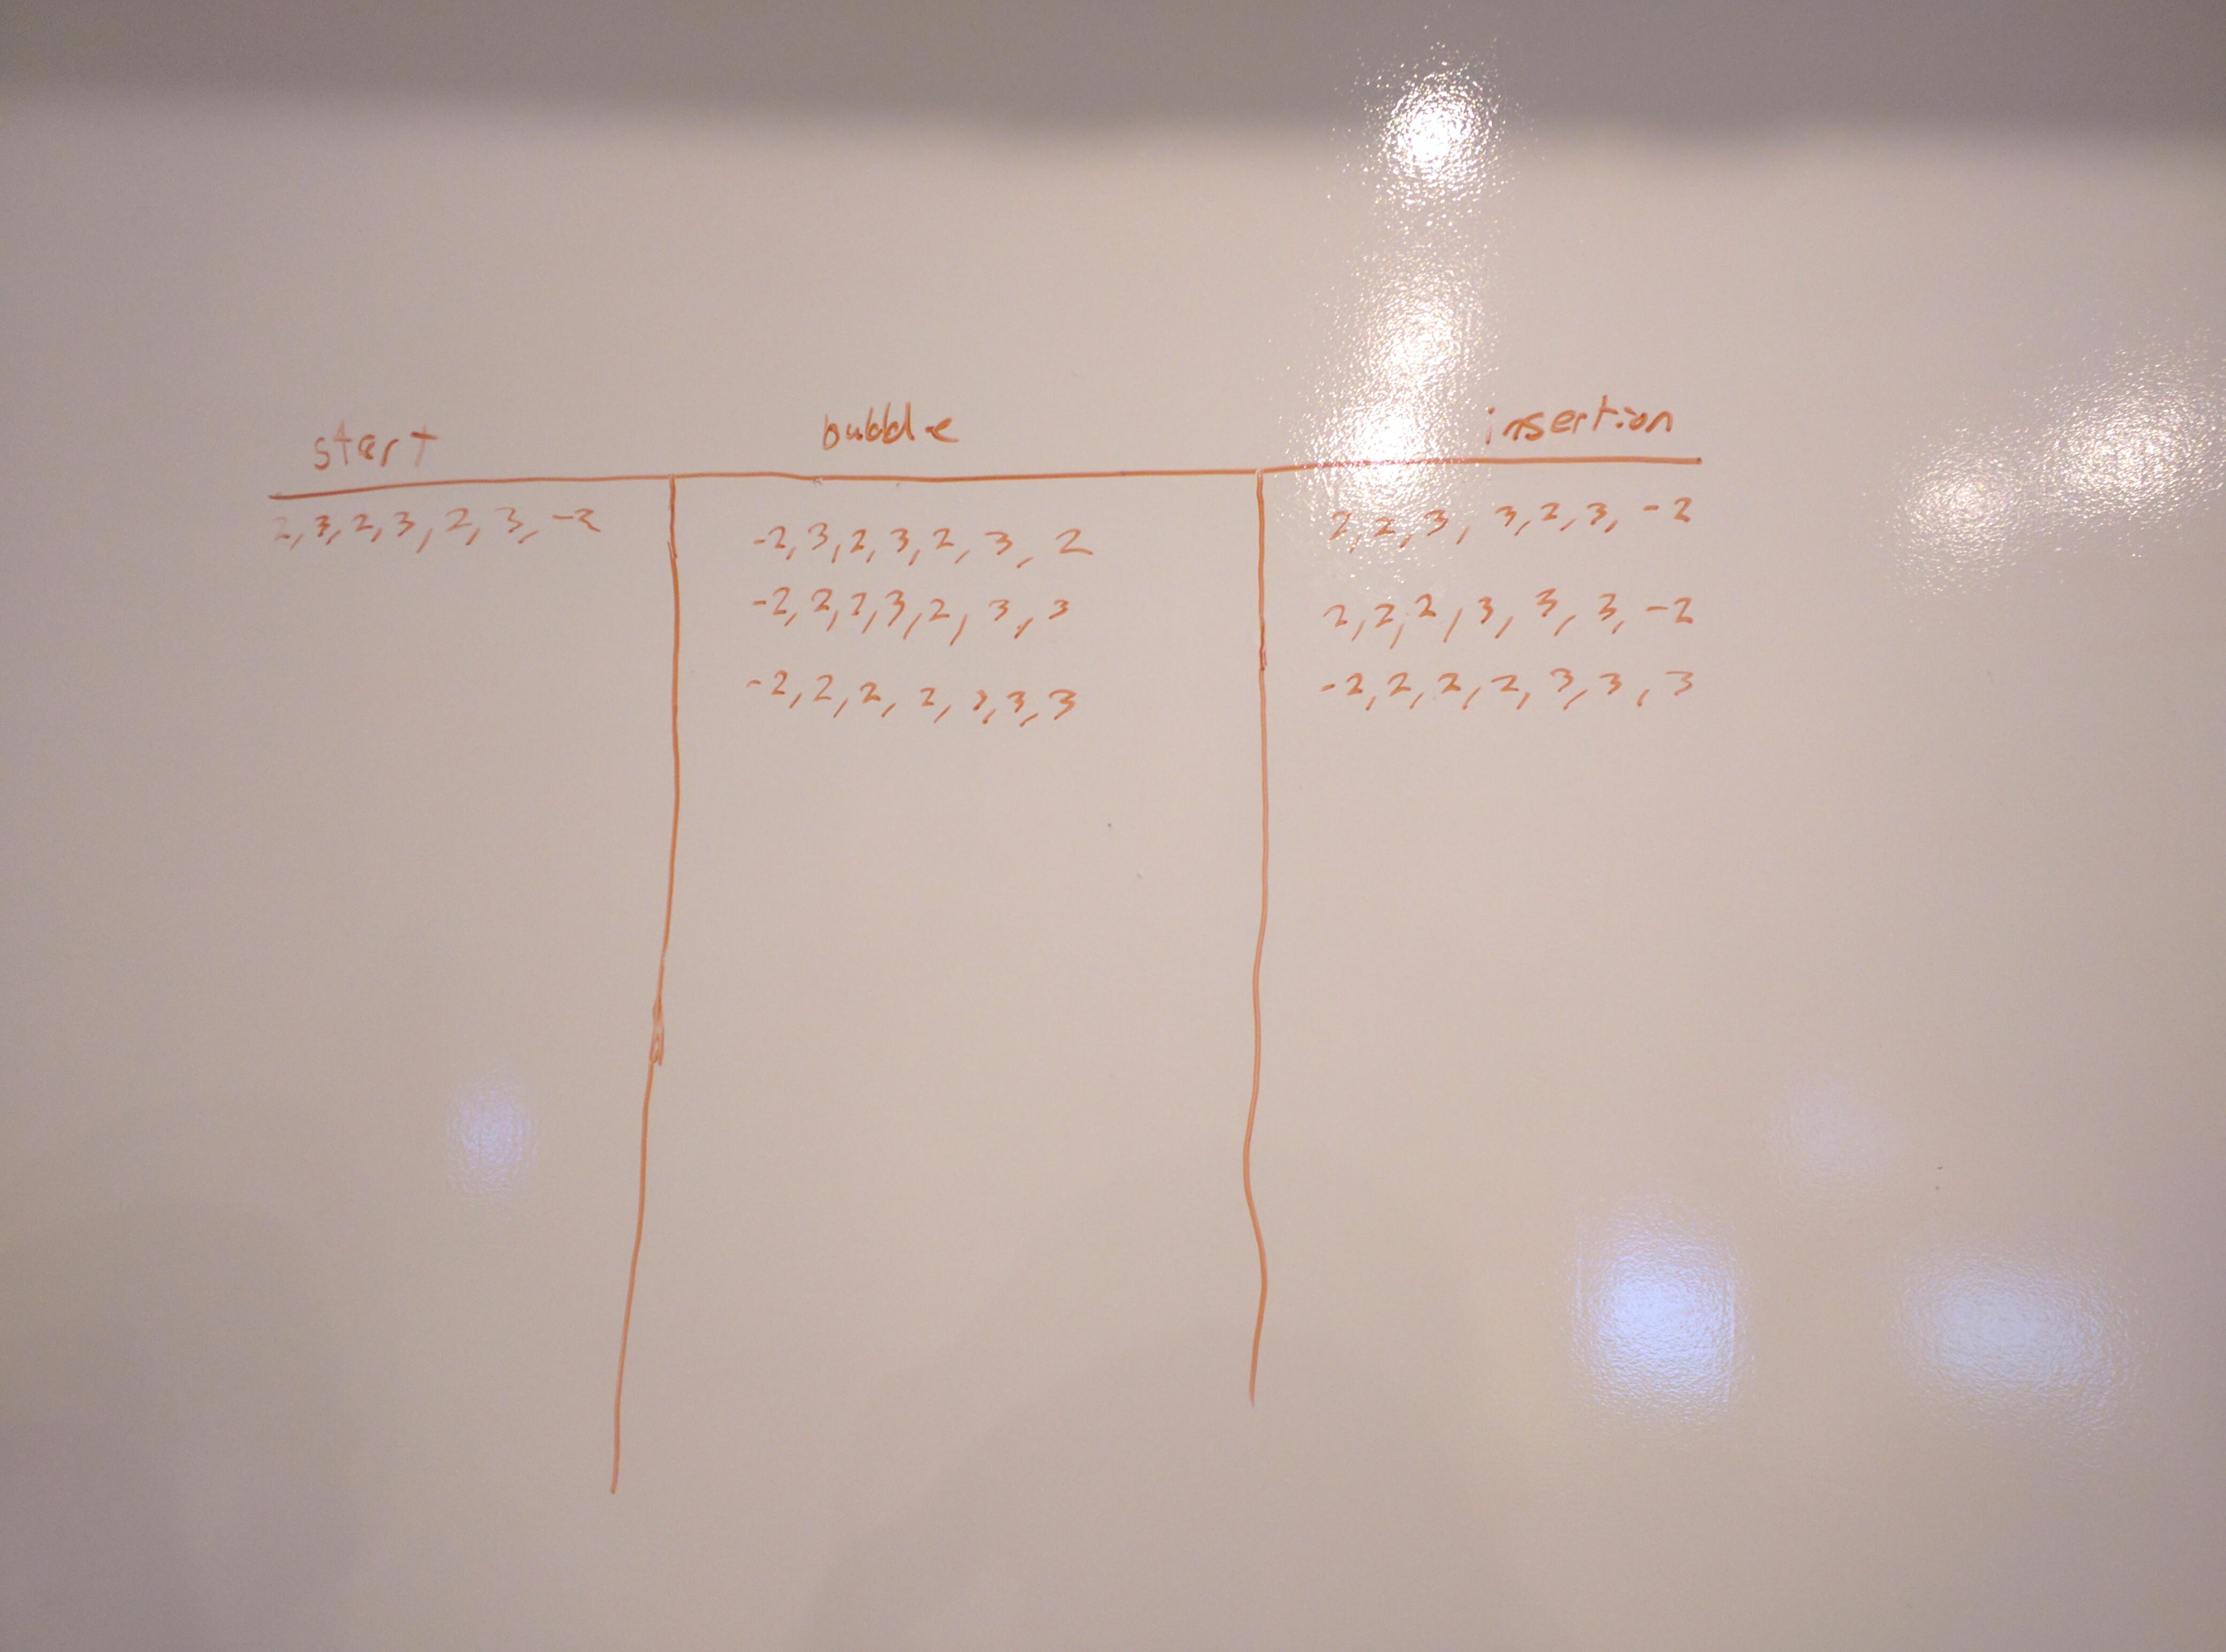 start
bubble
insertion
2, 3, 2, 3, 2, 3, -2
-2, 3, 2, 3, 2, 3, 2
-2, 2, 2, 3, 2, 3, 3
-2, 2, 2, 2, 3, 3, 3
2, 2, 3, 3, 2, 3, -2
2, 2, 2, 3, 3, 3, -2
-2, 2, 2, 2, 3, 3, 3